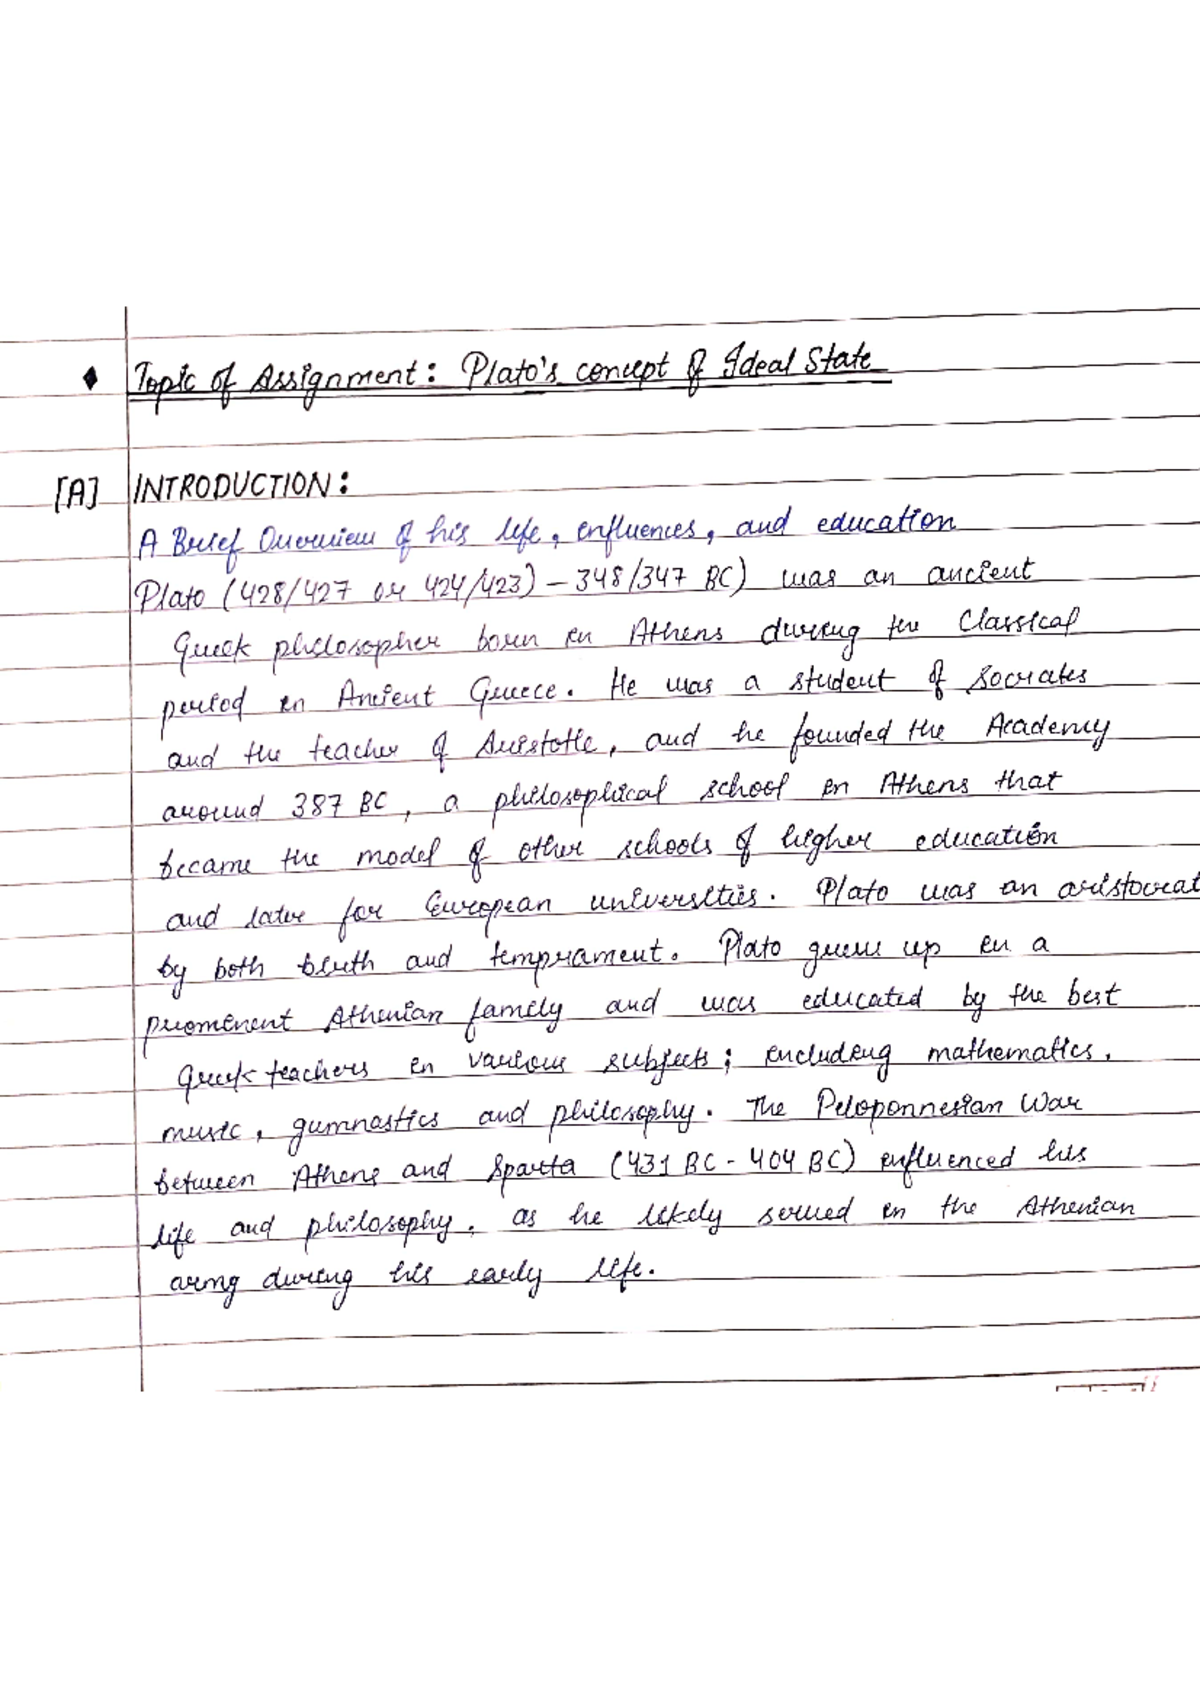 ♦ Topic of Assignment: Plato's concept of Ideal State
[A] INTRODUCTION:
A Brief Overview of his life, influences, and education
Plato (428/427 or 424/423) – 348/347 BC) was an ancient
Greek philosopher born in Athens during the Classical
period in Ancient Greece. He was a student of Socrates
and the teacher of Aristotle, and he founded the Academy
around 387 BC, a philosophical school in Athens that
became the model of other schools of higher education
and later for European universities. Plato was an aristocrat
by both birth and temprament. Plato grew up in a
prominent Athenian family and was educated by the best
Greek teachers in various subjects; including mathematics,
music, gumnastics and philosophy. The Peloponnesian War
between Athens and Sparta (431 BC - 404 BC) influenced his
life and philosophy, as he likely served in the Athenian
army during his early life.